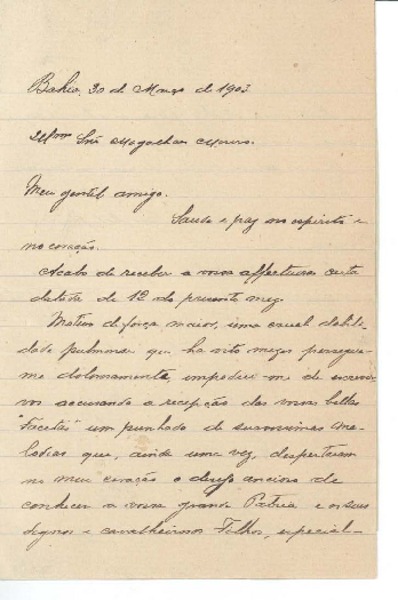 Bahia, 30 de Março de 1903
Illmo Snr Magalhães Moura.
Meu gentil amigo.
Saude e paz no espirito e
no coração.
Acabo de receber a vossa affectuosa carta
datada de 12 do presente mez.
Motivos de força maior, uma cruel debili-
dade pulmonar que, ha oito mezes persegue-
me dolorosamente, impediu-me de escrever-
vos accusando a recepção das vossas bellas
"Facetas" um punhado de suavissimas me-
lodias que, ainda uma vez, despertaram
no meu coração o desejo ancioso de
conhecer a vossa grande Patria e os seus
dignos e cavalheirosos Filhos, especial-